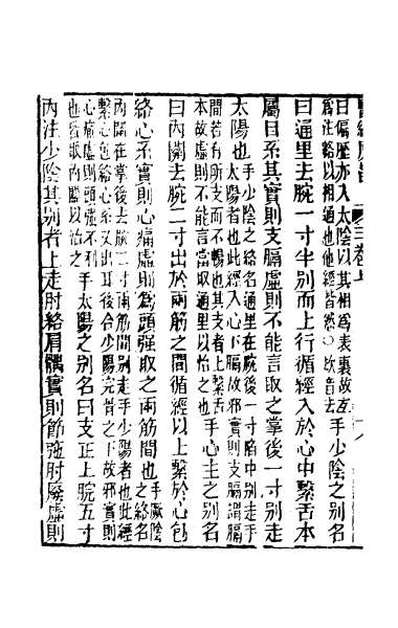 醫經原旨 三卷上
曰偏歷亦入太陰以其相爲表裏故互
爲注絡以相通也他經皆然○欬音去
手少陰之別名
曰通里去腕一寸半別而上行循經入於心中繫舌本
屬目系其實則支膈虛則不能言取之掌後一寸別走
太陽也
手少陰之絡名通里在腕後一寸陷中別走手
太陽者也此經入心下膈故邪實則支膈謂膈
間若有所支而不暢也其支者上繫舌
本故虛則不能言當取通里以治之也
手心主之別名
曰內關去腕二寸出於兩筋之間循經以上繫於心包
絡心系實則心痛虛則爲頭强取之兩筋間也
手厥陰
之絡名
內關在掌後去腕二寸兩筋間別走手少陽者也此經
繫心包絡心系又出耳後合少陽完骨之下故邪實則
心痛虛則頭强不利
也皆取內關以治之
手太陽之別名曰支正上腕五寸
內注少陰其別者上走肘絡肩髃實則節弛肘廢虛則